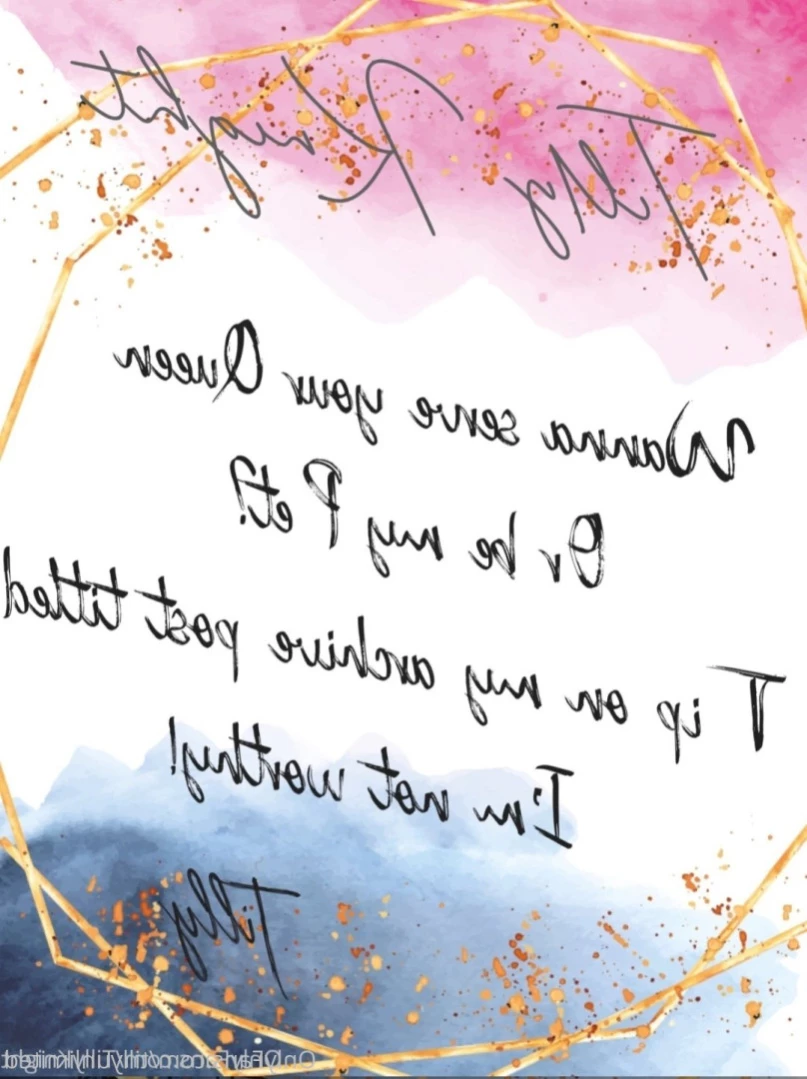 Tilly Knight
Wanna serve your Queen
Or be my Pet?
Tip on my archive post titled
I'm not worthy!
Tilly